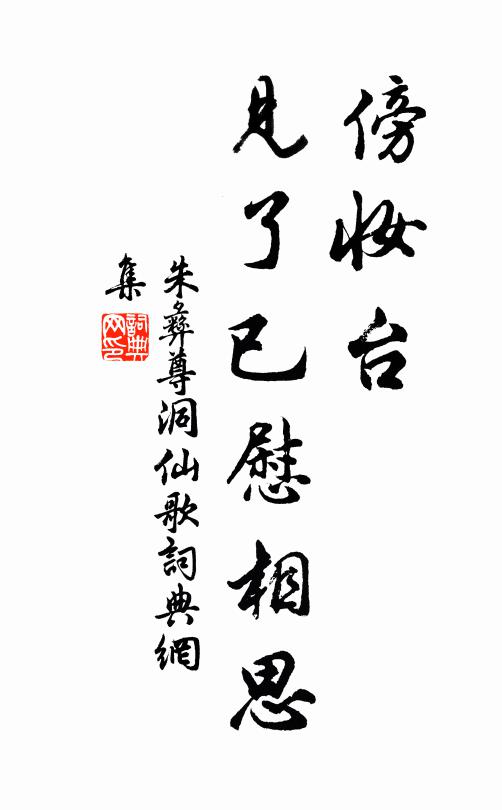 傍妆台
見了已慰相思
朱彝尊洞仙歌詞典網
集
詞典网印